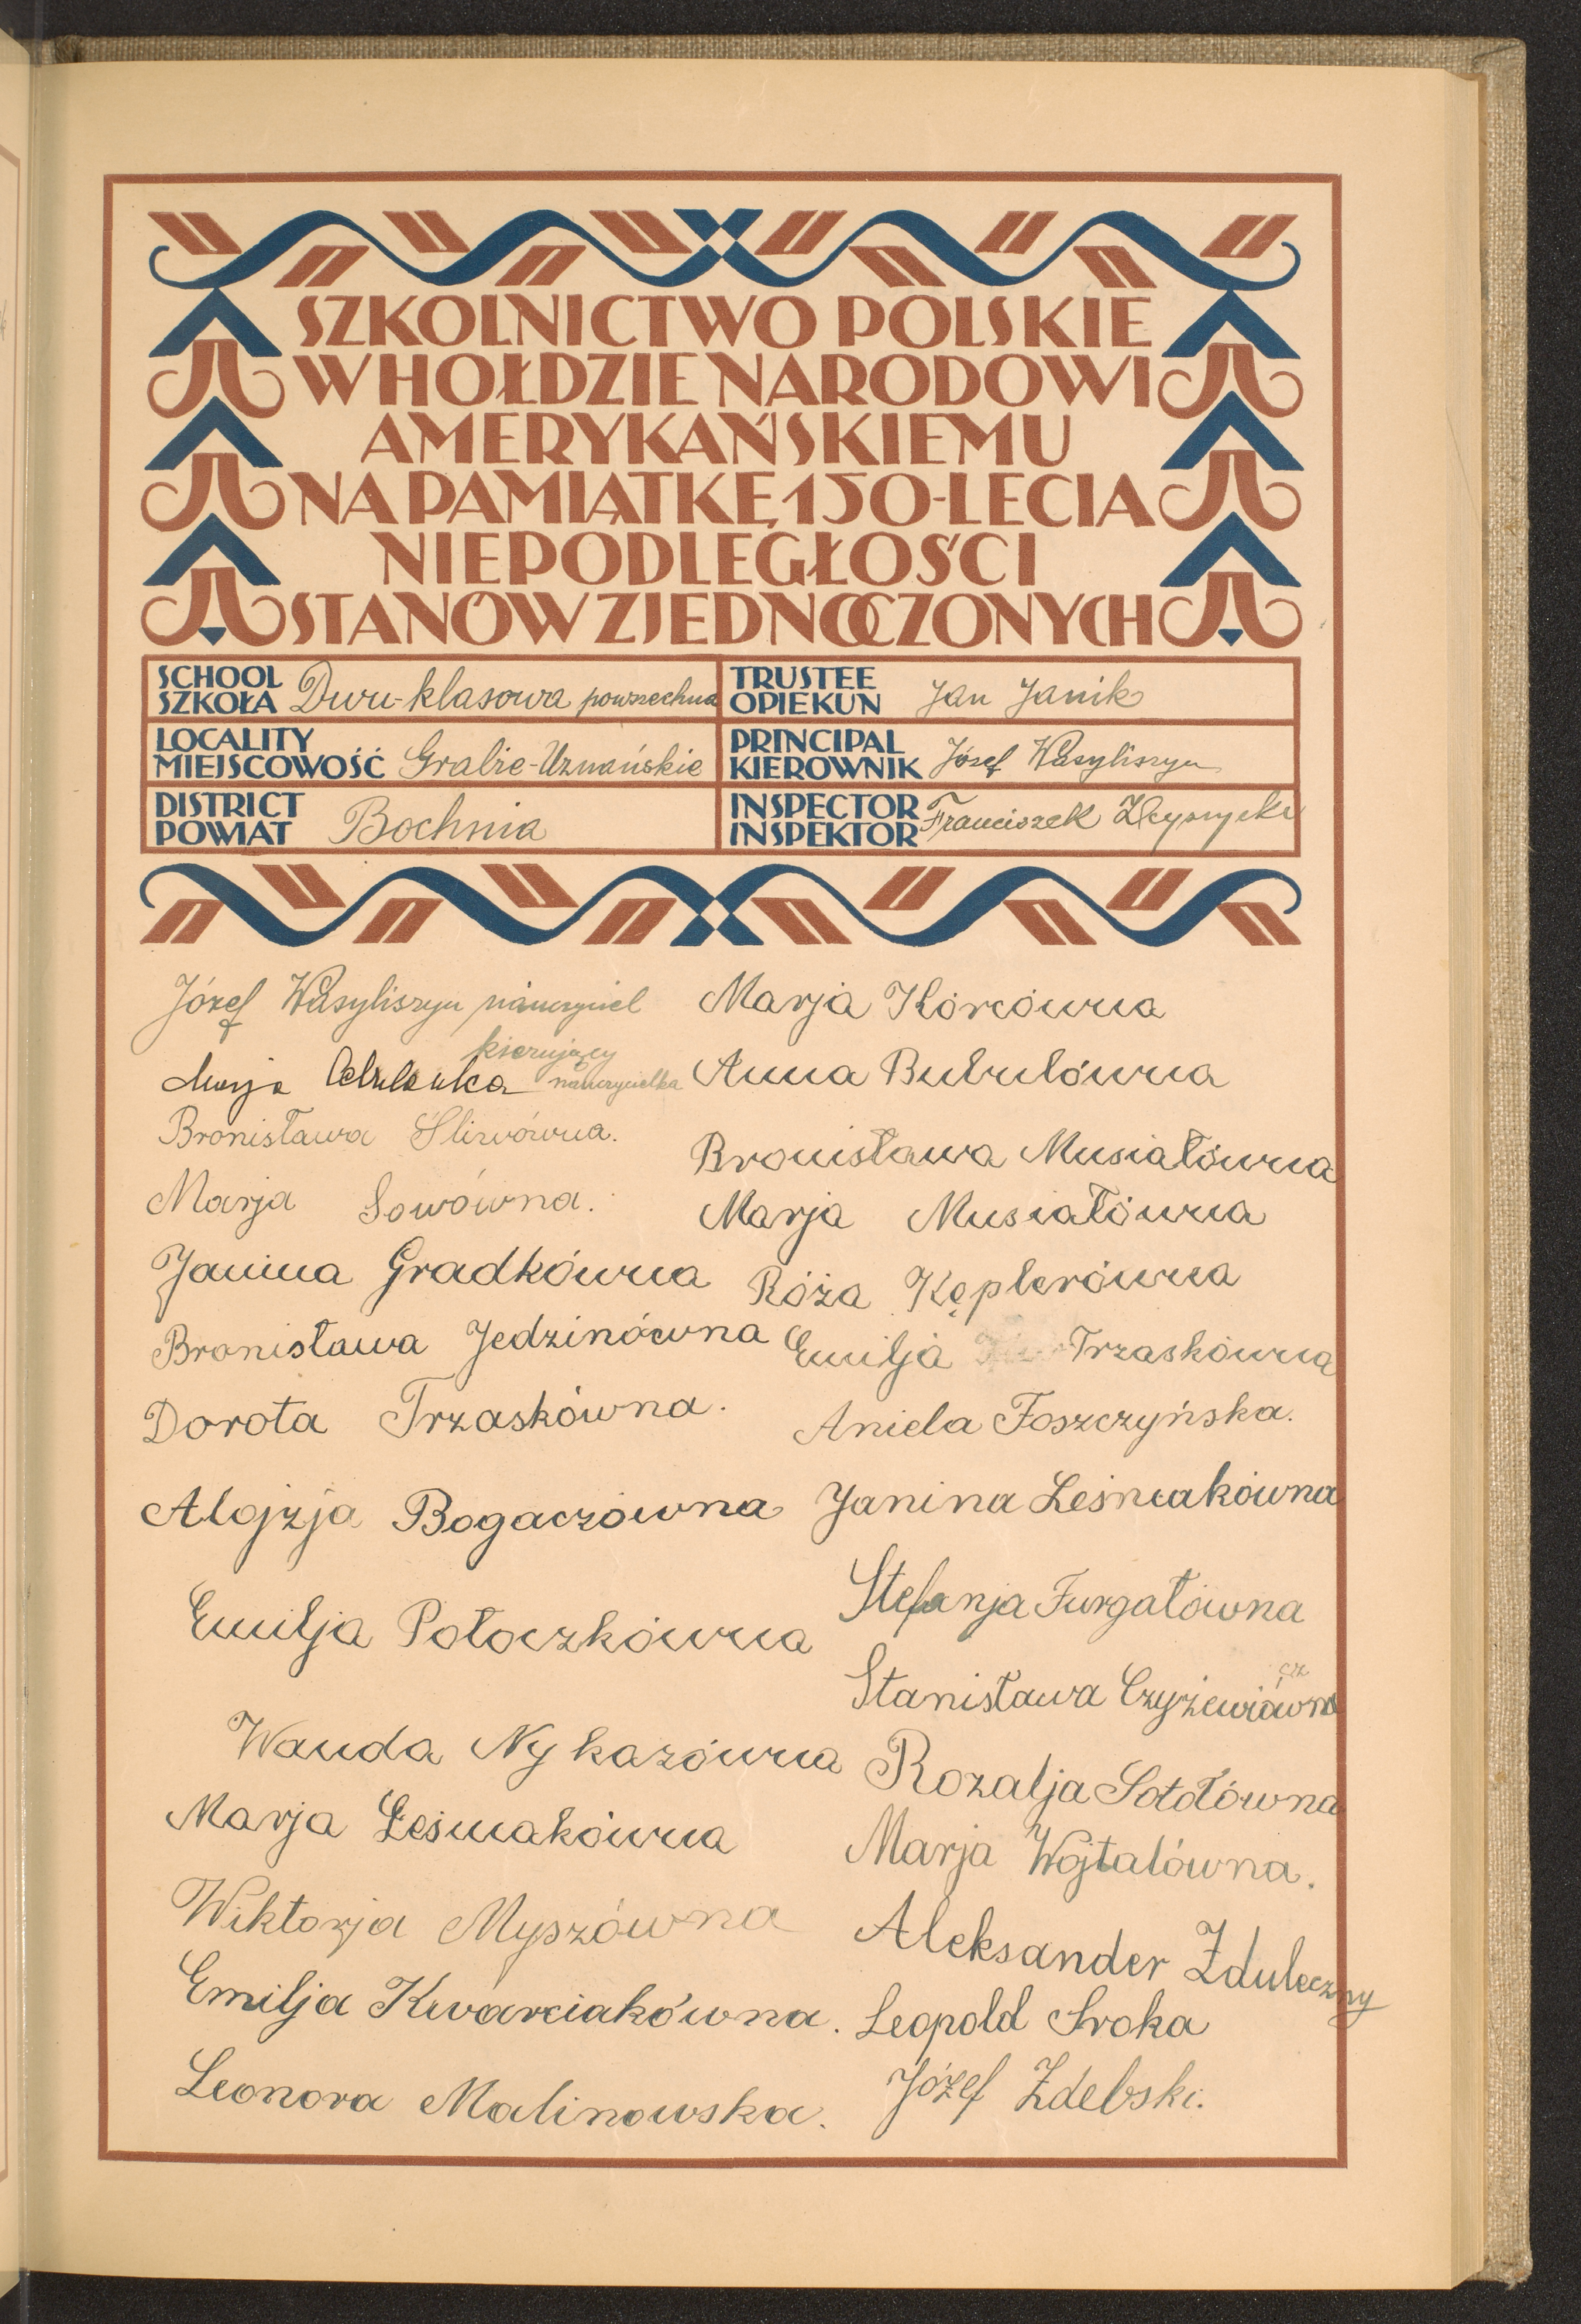 SZKOLNICTWO POLSKIE
W HOŁDZIE NARODOWI
AMERYKAŃSKIEMU
NA PAMIĄTKĘ 150-LECIA
NIEPODLEGŁOŚCI
STANÓW ZJEDNOCZONYCH
SCHOOL
SZKOŁA Dwu-klasowa powszechna
TRUSTEE
OPIEKUN Jan Janik
LOCALITY
MIEJSCOWOŚĆ Grabie-Uznańskie
PRINCIPAL
KIEROWNIK Józef Wasyliszyn
DISTRICT
POWIAT Bochnia
INSPECTOR
INSPEKTOR Franciszek
Józef Wasyliszyn nauczyciel
kierujący
Marja nauczycielka
Bronisława Śliwówna.
Marja Sowówna.
Janina Gradkówna
Bronisława Jedzinówna
Dorota Trzaskówna.
Alojzja Bogaczówna
Emilja Potoczkówna
Wanda Nykazówna
Marja Leśniakówna
Wiktorja Myszówna
Emilja Kwarciakówna.
Leonora Malinowska.
Marja Korcówna
Anna Bubulówna
Bronisława Musiałówna
Marja Musiałówna
Róża Kęplerówna
Emilja Trzaskówna
Aniela Foszczyńska.
Janina Leśniakówna
Stefanja Furgałówna
cz
Stanisława Czyżewiówna
Rozalja Sotołówna
Marja Wojtalówna.
Aleksander Zduleczny
Leopold Sroka
Józef Zdebski.